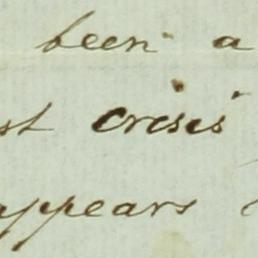 been a
st crisis
appears